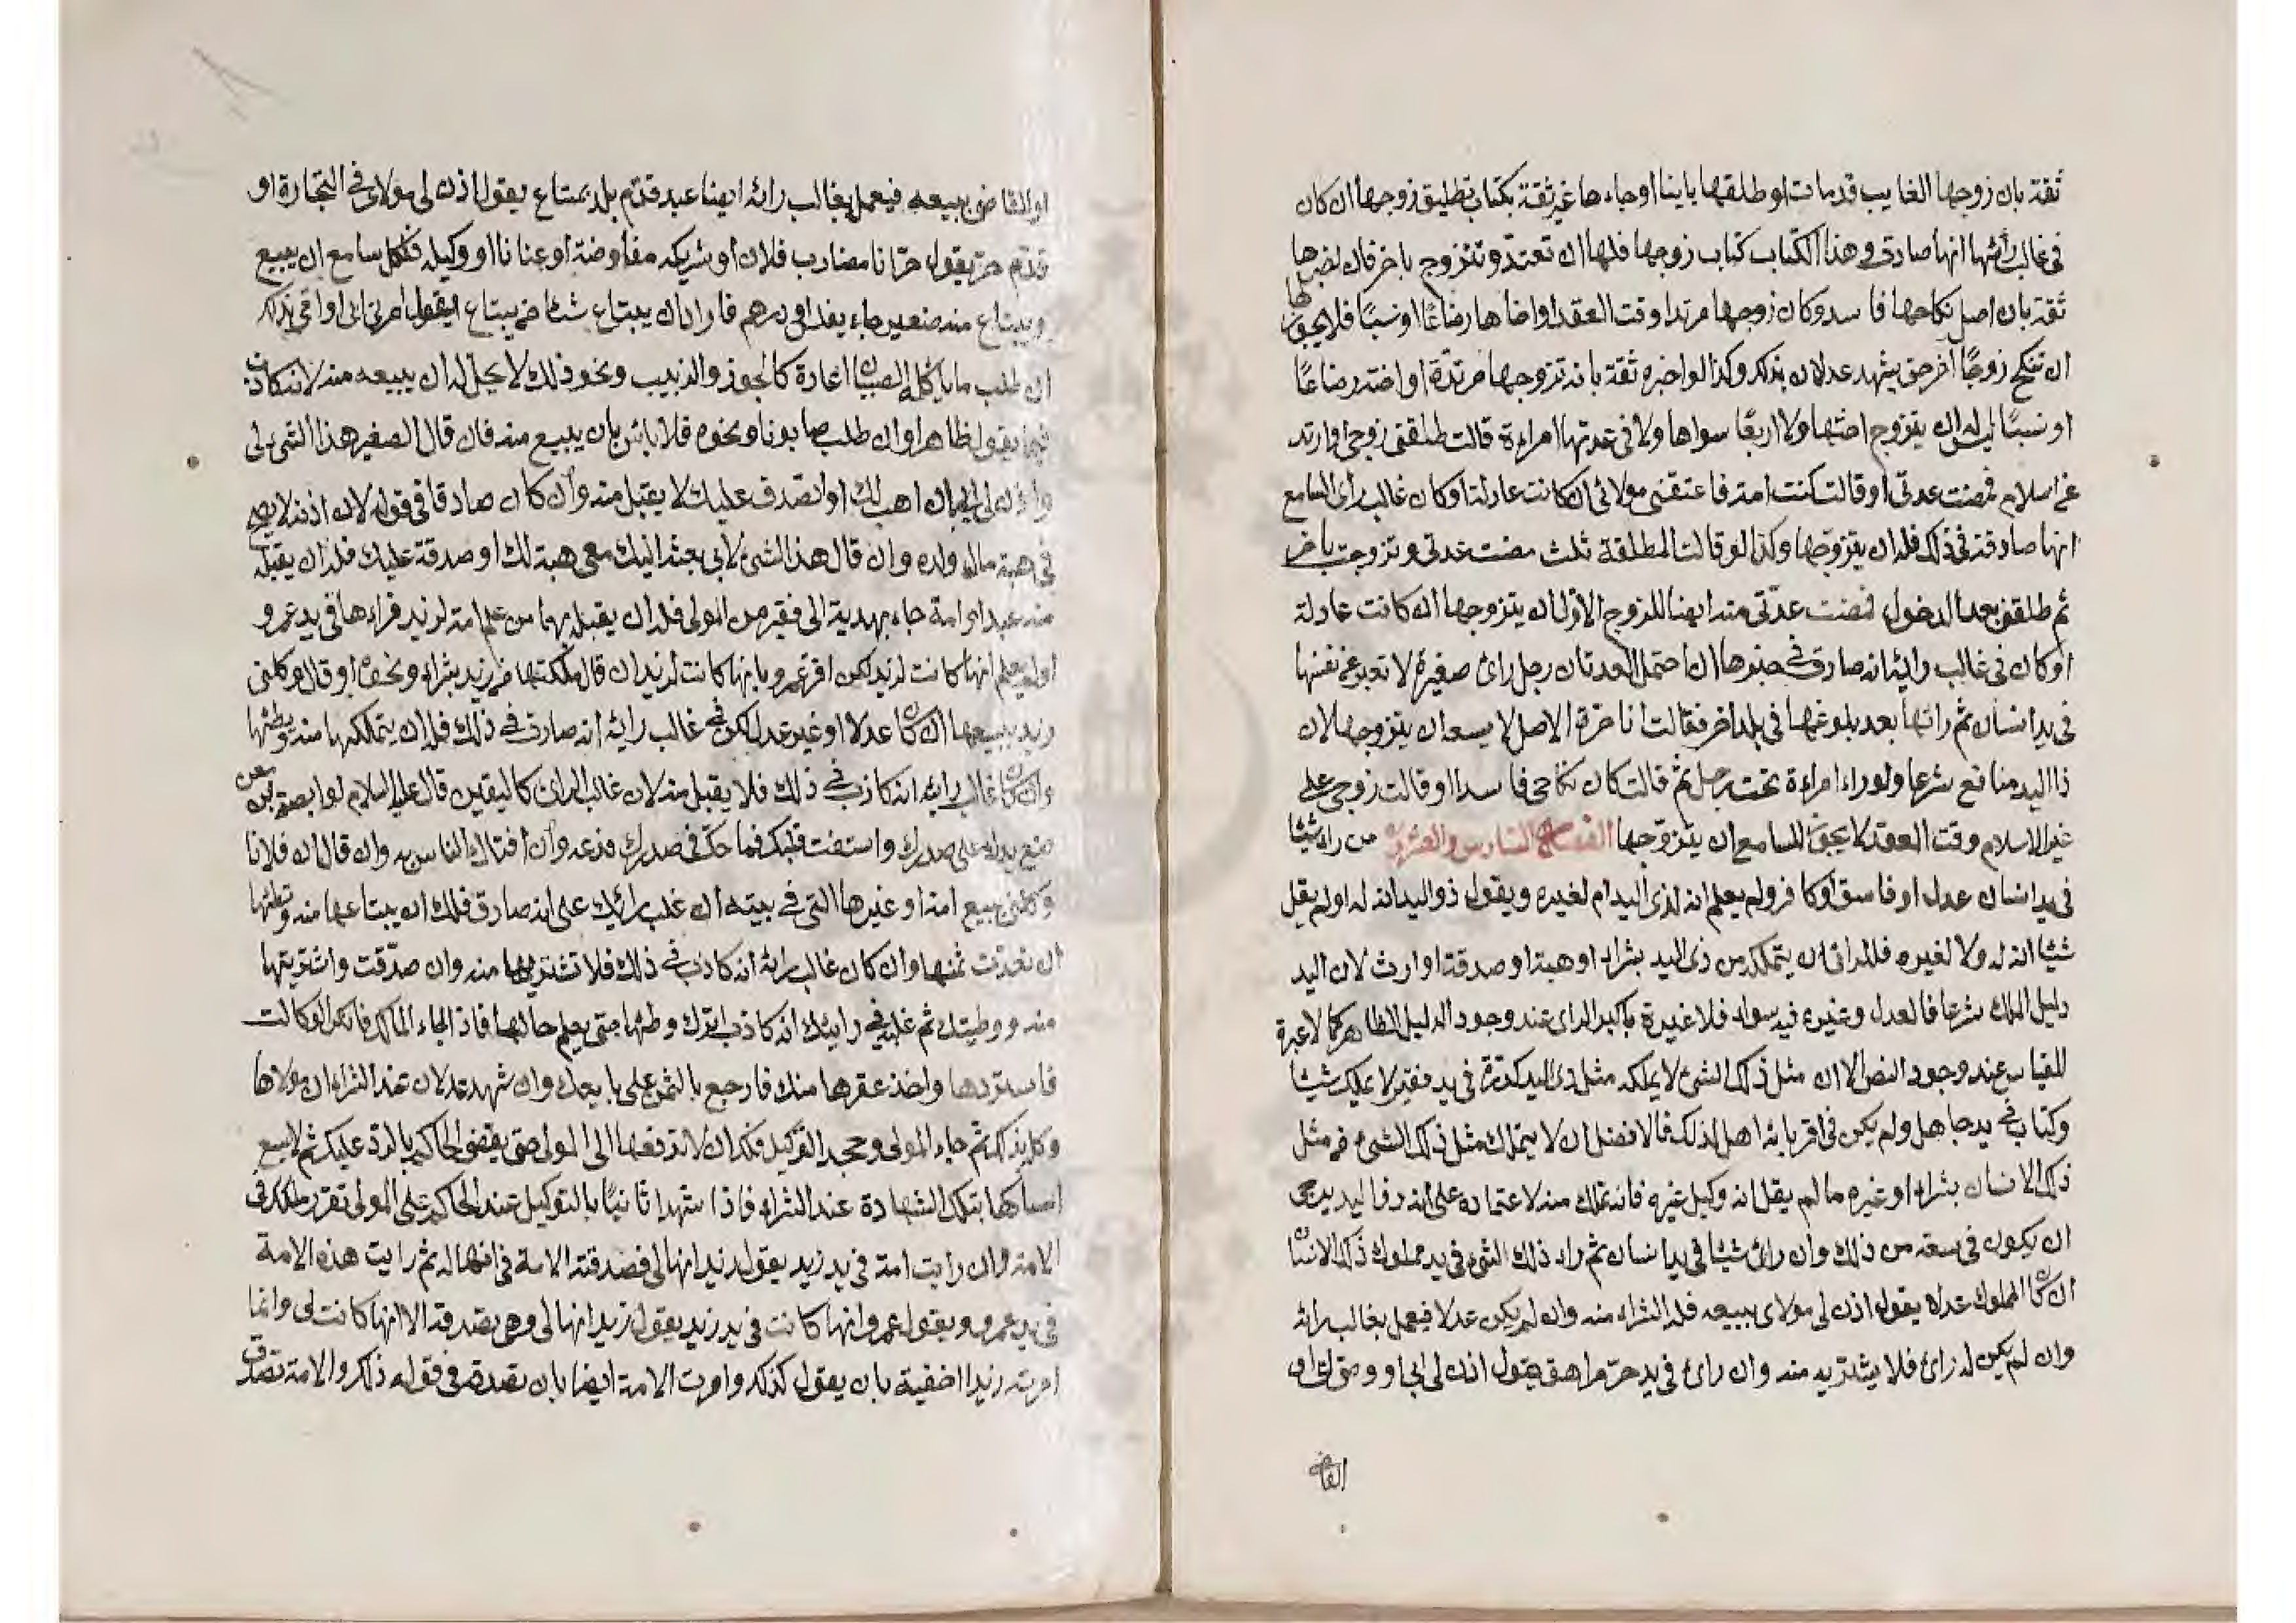 ثقة بان زوجها الغايب قد مات او طلقها باينا او جاءها غير ثقة بكتاب تطليق زوجها ان كان
فى غالب رأيها انها صادق وهذا الكتاب كتاب زوجها فلها ان تعتد وتتزوج باخر فان اخبرها
ثقة بان اصل نكاحها فاسد وكان زوجها مرتدا وقت العقد او اخاها رضاعًا او نسبًا فلا يجوز لها
ان تنكح زوجًا اخر حتى يشهد عدلان بذلك وكذا لو اخبره ثقة بانه تزوجها مرتدة او اخته رضاعًا
او نسبًا ليس له ان يتزوج اختها ولا اربعًا سواها ولا فى عدتها امراءة قالت طلقنى زوجى او ارتد
عن اسلام فمضت عدتى او قالت كنت امة فاعتقنى مولائى ان كانت عادلة او كان غالب رأى السامع
انها صادقة فى ذلك فله ان يتزوجها وكذا لو قالت المطلقة ثلث مضت عدتى وتزوجت باخر
ثم طلقنى بعد الدخول فمضت عدّتى منه ايضا للزوج الاول ان يتزوجها ان كانت عادلة
او كان فى غالب رائيه انه صادق فى خبرها ان احتمل العدتان رجل رائ صغيرة لا تعبر عن نفسها
فى يد انسان ثم راتها بعد بلوغها فى بلد اخر فقالت انا حرة الاصل لا يسعه ان يتزوجها لان
ذا اليد منا نع شرعا ولو راء امراءة تحت رجل ثم قالت كان نكاحى فاسدا او قالت زوجى على
غير الاسلام وقت العقد لا يجوز للسامع ان يتزوجها الفصل السادس والعشرون من راء شيئا
فى يد انسان عدل او فاسق او كافر ولم يعلم انه لذى اليد ام لغيره ويقول ذو اليد انه له او لم يقل
شيئا انه له ولا لغيره فللرائى ان يتملكه من ذى اليد بشراء او هبة او صدقة او ارث لان اليد
دليل الملك شرعا فالعدل وغيره فيه سواء فلا عبرة باكبر الراى عند وجود الدليل الظاهر كما لا عبرة
للقياس عند وجود النص الا ان مثل ذلك الشئ لا يملكه مثل ذى اليد كدرة فى يد فقير لا يملك شيئا
وكتاب فى يد جاهل ولم يكن فى اقربائه اهل لذلك فالافضل ان لا يتملك مثل ذلك الشئ من مثل
ذلك الانسان بشراء او غيره ما لم يقل انه وكيل غيره فانه تملك منه لاعتماده على انه ذو اليد يرجى
ان يكون فى سعة من ذلك وان رائ شيئا فى يد انسان ثم راء ذلك الشئ فى يد مملوك ذلك الانسان
ان كان المملوك عدلا يقول اذن لى مولاى ببيعه فله الشراء منه وان لم يكن عدلا فيعمل بغالب رائه
وان لم يكن له رائ فلا يشتريه منه وان رائ فى يد حر مراهق يقول اذن لى ابى او وصى لى او
القاضى
او القاضى ببيعه فيعمل بغالب رائه ايضا عبد قدم بلد بمتاع يقول اذن لى مولاى فى التجارة او
قدم حر يقول حر انا مضارب فلان او شريكه مفاوضة او عنانا او وكيله فلكل سامع ان يبيع
ويبتاع منه صغير جاء بفلس او درهم فاراد ان يبتاع شيئا من يبتاع يقول امرنى ابى او اقى بذلك
ان طلب ما ياكله الصبيان اعادة كالجوز والزبيب ونحو ذلك لا يحل له ان يبيعه منه لانه كاذب
فيما يقول ظاهرا وان طلب صابونا ونحوه فلا باس بان يبيع منه فان قال الصغير هذا الشئ لى
واذن لى ابى ان اهب لك او اتصدق عليك لا يقبل منه وان كان صادقا فى قوله لان اذنه لا يصح
فى هبة مال ولده وان قال هذا الشئ لابى بعث اليك معى هبة لك او صدقة عليك فله ان يقبله
منه عبد او امة جاء بهدية الى فقير من المولى فله ان يقبله بهما من علم امة لزيد فراءها فى يد عمرو
او لم يعلم انها كانت لزيد لكن اقر عمرو بانها كانت لزيد ان قال ملكتها من زيد بشراء ونحوه او قال وكلنى
زيد ببيعها ان كان عدلا او غير عدل لكن فى غالب رايه انه صادق فى ذلك فله ان يتملكها منه ويطئها
وان كان غالب رايه انه كاذب فى ذلك فلا يقبل منه لان غالب الراى كاليقين قال عليه السلام لوابصة بن معبد
ضع يدك على صدرك واستفت قلبك فما حك فى صدرك فدعه وان افتاك الناس به وان قال ان فلانا
وكلنى ببيع امة او غيرها التى فى بيته ان غلب رائك على انه صادق فلك ان يبتاعها منه وتطئها
ان نقدت ثمنها وان كان غالب رائه انه كاذب فى ذلك فلا تشتريها منه وان صدّقت واشتريتها
منه ووطيتك ثم غلب فى رائيك انه كاذب اترك وطئها حتى يعلم حالها فاذا جاء المالك فانكر الوكالت
فاستردها واخذ عقرها منك فارجع بالثمن على بايعك وان شهد عدلان عند الشراء ان مولاها
وكله بذلك ثم جاء المولى وجحد التوكيل فلك ان لا تدفعها الى المولى حتى يقضى الحاكم بالرد عليك ثم لا يسع
امساكها بتلك الشهادة عند الشراء فاذا شهدا ثانيًا بالتوكيل عند الحاكم على المولى تقرر ملكك فى
الامة وان رايت امة فى يد زيد يقول زيد انها لى فصدقته الامة فى انها له ثم رايت هذه الامة
فى يد عمرو ويقول عمرو انها كانت فى يد زيد يقول زيد انها لى وهى تصدقه الا انها كانت لى وانما
امرته زيدا اخفية بان يقول كذلك وامرت الامة ايضا بان تصدقه فى قوله ذلك والامة تصدق